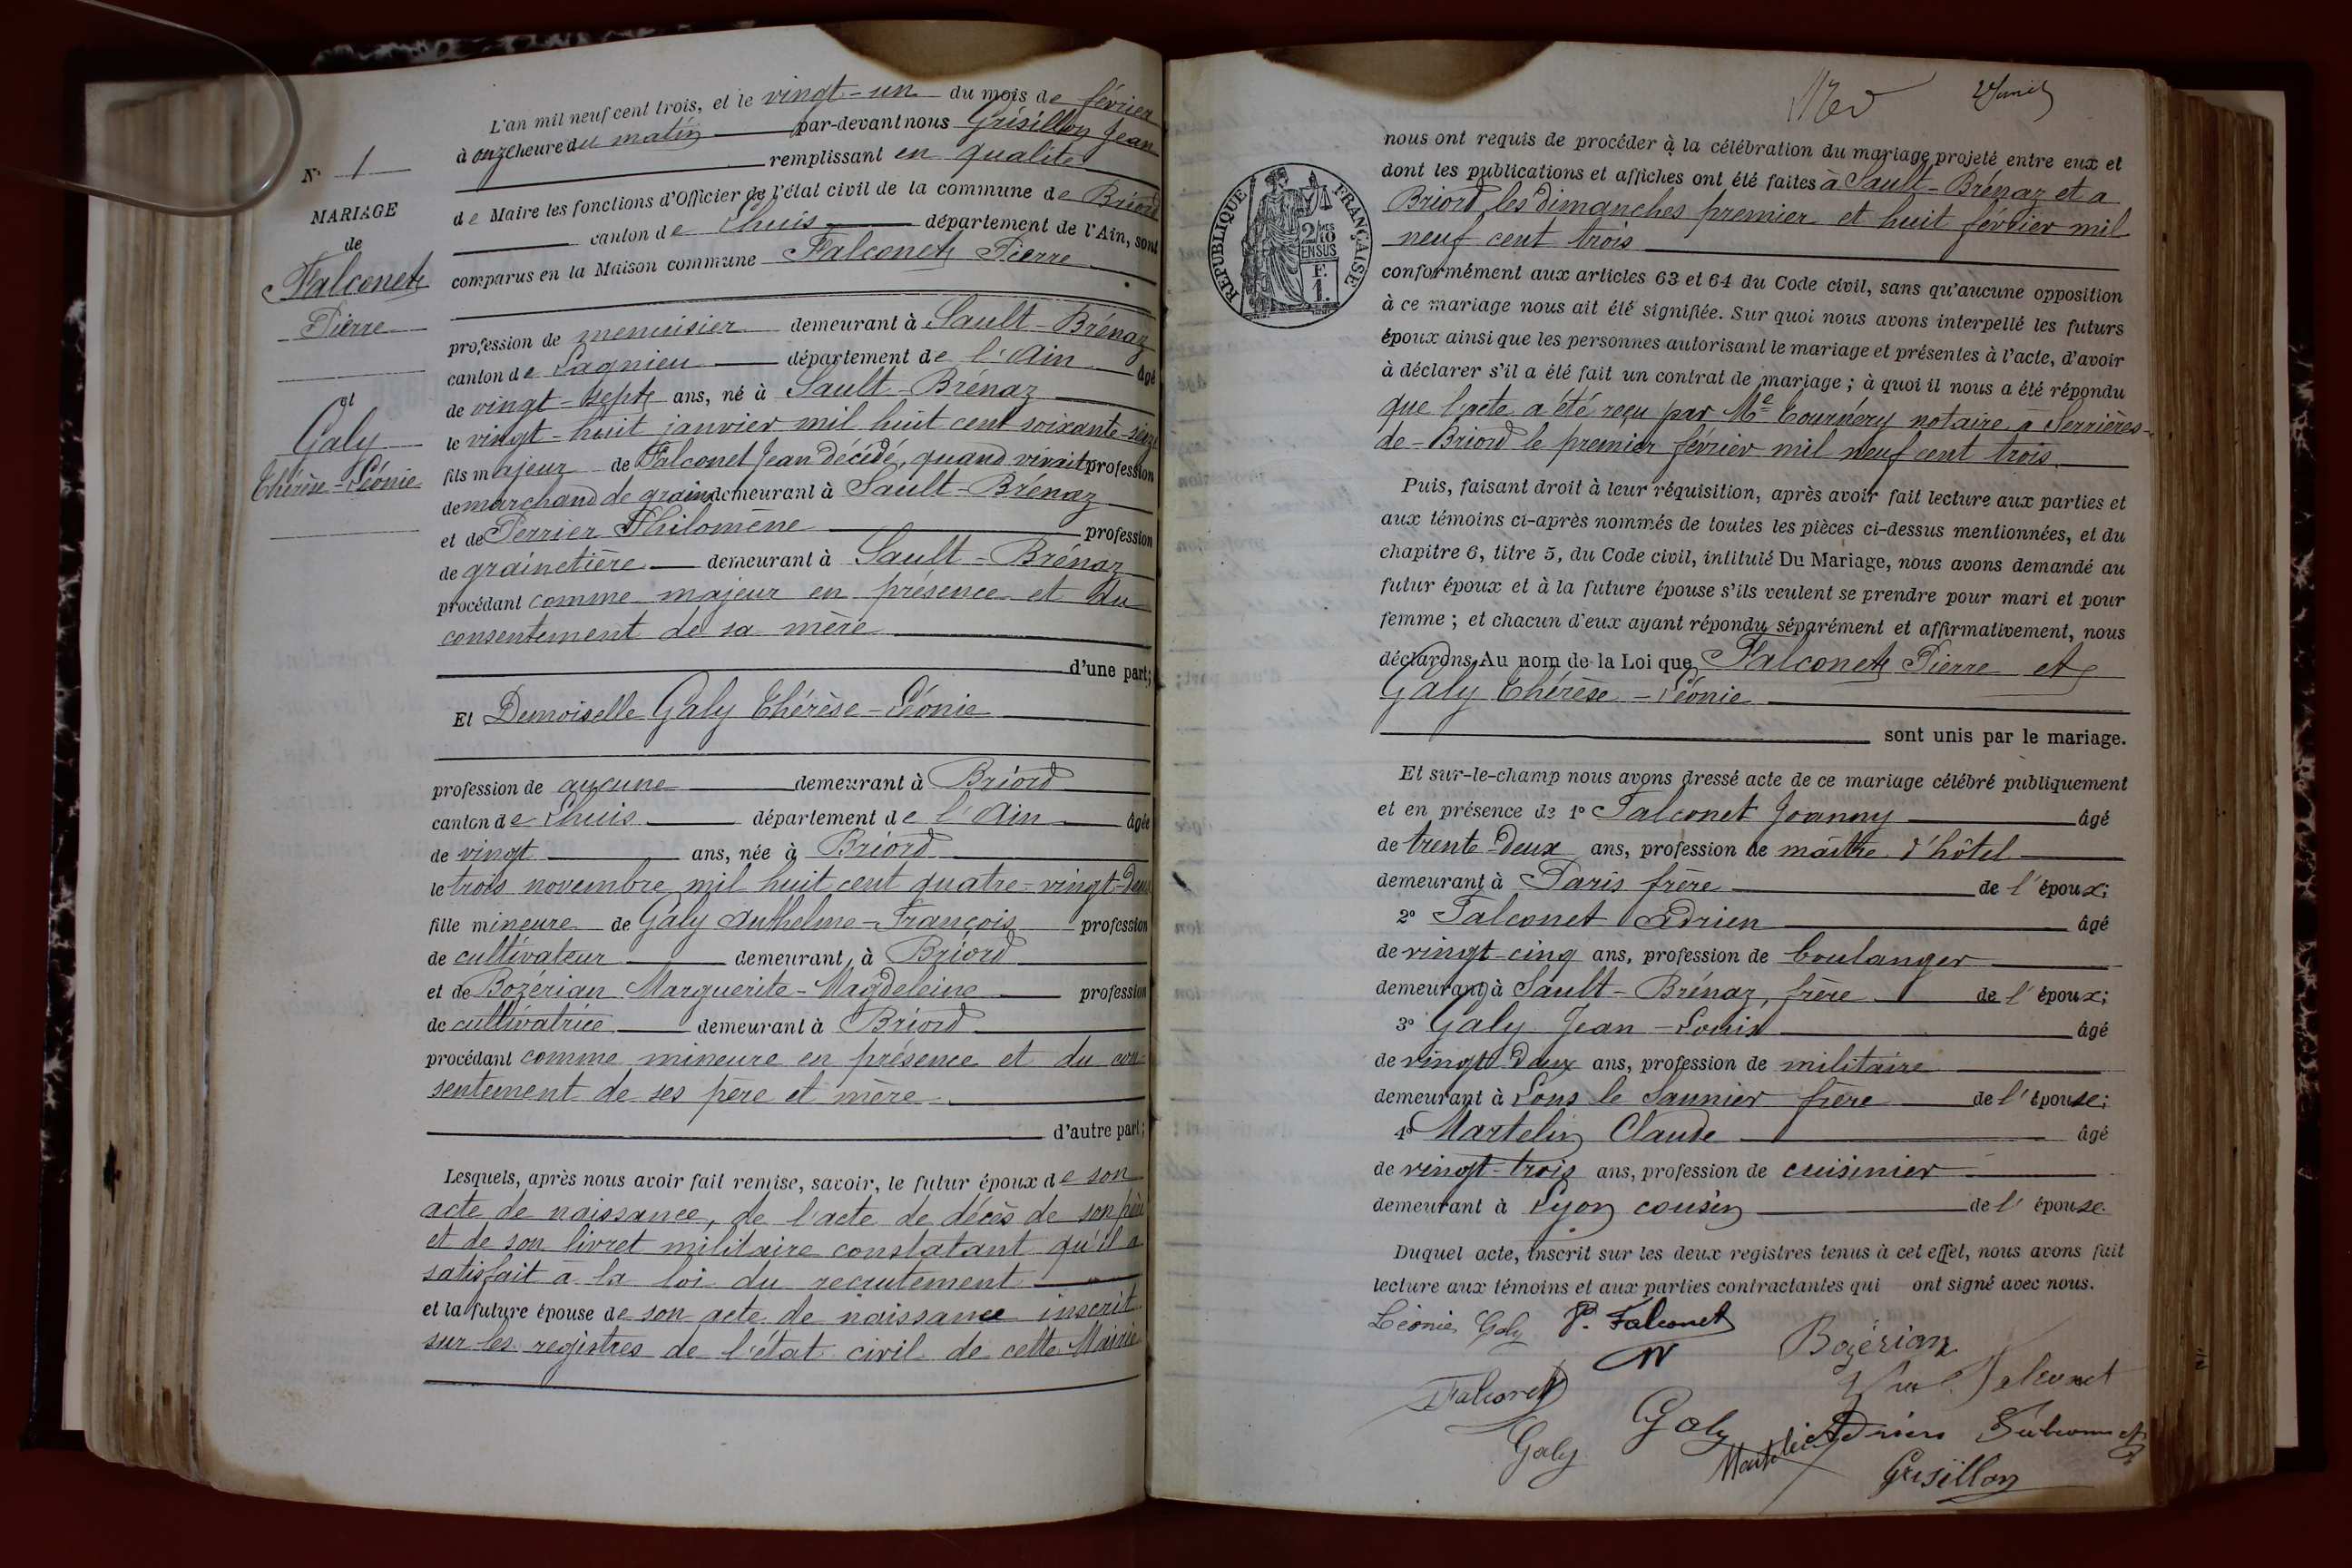 L'an mil neuf cent trois, et le vingt-un du mois de février
à onze heure du matin par-devant nous Grisillon Jean
remplissant en qualité
de Maire les fonctions d'Officier de l'état civil de la commune de Briord
canton de Lhuis département de l'Ain, sont
comparus en la Maison commune Falconet Pierre
N° 1
MARIAGE
de
Falconet
Pierre
et
Galy
Thérèse-Léonie
profession de menuisier demeurant à Sault-Brénaz
canton de Lagnieu département de l'Ain âgé
de vingt-sept ans, né à Sault-Brénaz
le vingt-huit janvier mil huit cent soixante-seize
fils majeur de Falconet Jean décédé, quand vivait profession
de marchand de grains demeurant à Sault-Brénaz
et de Perrier Philomène profession
de grainetière demeurant à Sault-Brénaz
procédant comme majeur en présence et du
consentement de sa mère
d'une part;
Et Demoiselle Galy Thérèse-Léonie
profession de aucune demeurant à Briord
canton de Lhuis département de l'Ain âgée
de vingt ans, née à Briord
le trois novembre mil huit cent quatre-vingt-deux
fille mineure de Galy Anthelme-François profession
de cultivateur demeurant à Briord
et de Bozérian Marguerite-Magdeleine profession
de cultivatrice demeurant à Briord
procédant comme mineure en présence et du con-
sentement de ses père et mère
d'autre part;
Lesquels, après nous avoir fait remise, savoir, le futur époux de son
acte de naissance, de l'acte de décès de son père
et de son livret militaire constatant qu'il a
satisfait à la loi du recrutement
et la future épouse de son acte de naissance inscrit
sur les registres de l'état civil de cette Mairie
nous ont requis de procéder à la célébration du mariage projeté entre eux et
dont les publications et affiches ont été faites à Sault-Brénaz et a
Briord les dimanches premier et huit février mil
neuf cent trois
RÉPUBLIQUE FRANÇAISE
2/10 MES
EN SUS
F.
1.
conformément aux articles 63 et 64 du Code civil, sans qu'aucune opposition
à ce mariage nous ait été signifiée. Sur quoi nous avons interpellé les futurs
époux ainsi que les personnes autorisant le mariage et présentes à l'acte, d'avoir
à déclarer s'il a été fait un contrat de mariage ; à quoi il nous a été répondu
que l'acte a été reçu par Me Tournéry notaire à Serrières-
de-Briord le premier février mil neuf cent trois.
Puis, faisant droit à leur réquisition, après avoir fait lecture aux parties et
aux témoins ci-après nommés de toutes les pièces ci-dessus mentionnées, et du
chapitre 6, titre 5, du Code civil, intitulé Du Mariage, nous avons demandé au
futur époux et à la future épouse s'ils veulent se prendre pour mari et pour
femme ; et chacun d'eux ayant répondu séparément et affirmativement, nous
déclarons Au nom de la Loi que Falconet Pierre et
Galy Thérèse-Léonie
sont unis par le mariage.
Et sur-le-champ nous avons dressé acte de ce mariage célébré publiquement
et en présence de 1° Falconet Joanny âgé
de trente-deux ans, profession de maître d'hôtel
demeurant à Paris frère de l'époux;
2° Falconet Adrien âgé
de vingt-cinq ans, profession de boulanger
demeurant à Sault-Brénaz, frère de l'époux;
3° Galy Jean-Louis âgé
de vingt-deux ans, profession de militaire
demeurant à Lons le Saunier frère de l'épouse;
4° Martelin Claude âgé
de vingt-trois ans, profession de cuisinier
demeurant à Lyon cousin de l'épouse.
Duquel acte, inscrit sur les deux registres tenus à cet effet, nous avons fait
lecture aux témoins et aux parties contractantes qui ont signé avec nous.
Léonie Galy P. Falconet
Bozérian
Falconet
Falconet
Galy
Galy
Adrien Falconnet
Grisillon